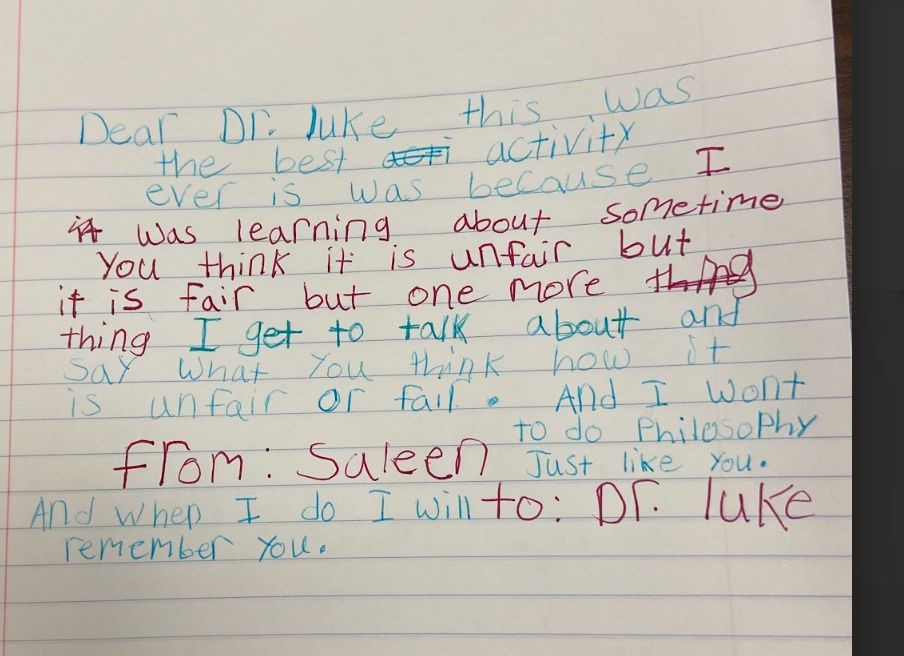 Dear Dr. luke this was
the best acti activity
ever is was because I
it was learning about sometime
You think it is unfair but
it is fair but one more thing
thing I get to talk about and
say what You think how it
is unfair or fair. And I wont
to do Philosophy
from: Saleen Just like you.
And when I do I will to: Dr. luke
remember you.